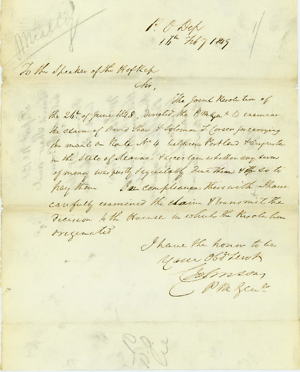 P. O Dep
16th Feby 1849
To the Speaker of the Hofrep
Sir,
The Joint Resolution of
the 26th of June 1848, directed the P M Gen to examine
the claim of & Solomon T Corser for carrying
the mail on Route No 4 between Portland & Augusta
in the State of Maine & ascertain whether any sum
of money was justly & equitably due them & if so to
pay them In compliance therewith I have
carefully examined the claim & transmit the
decision to the House in which the Resolution
originated
I have the honor to be
Your Obt Servt
C Johnson
P M Genl